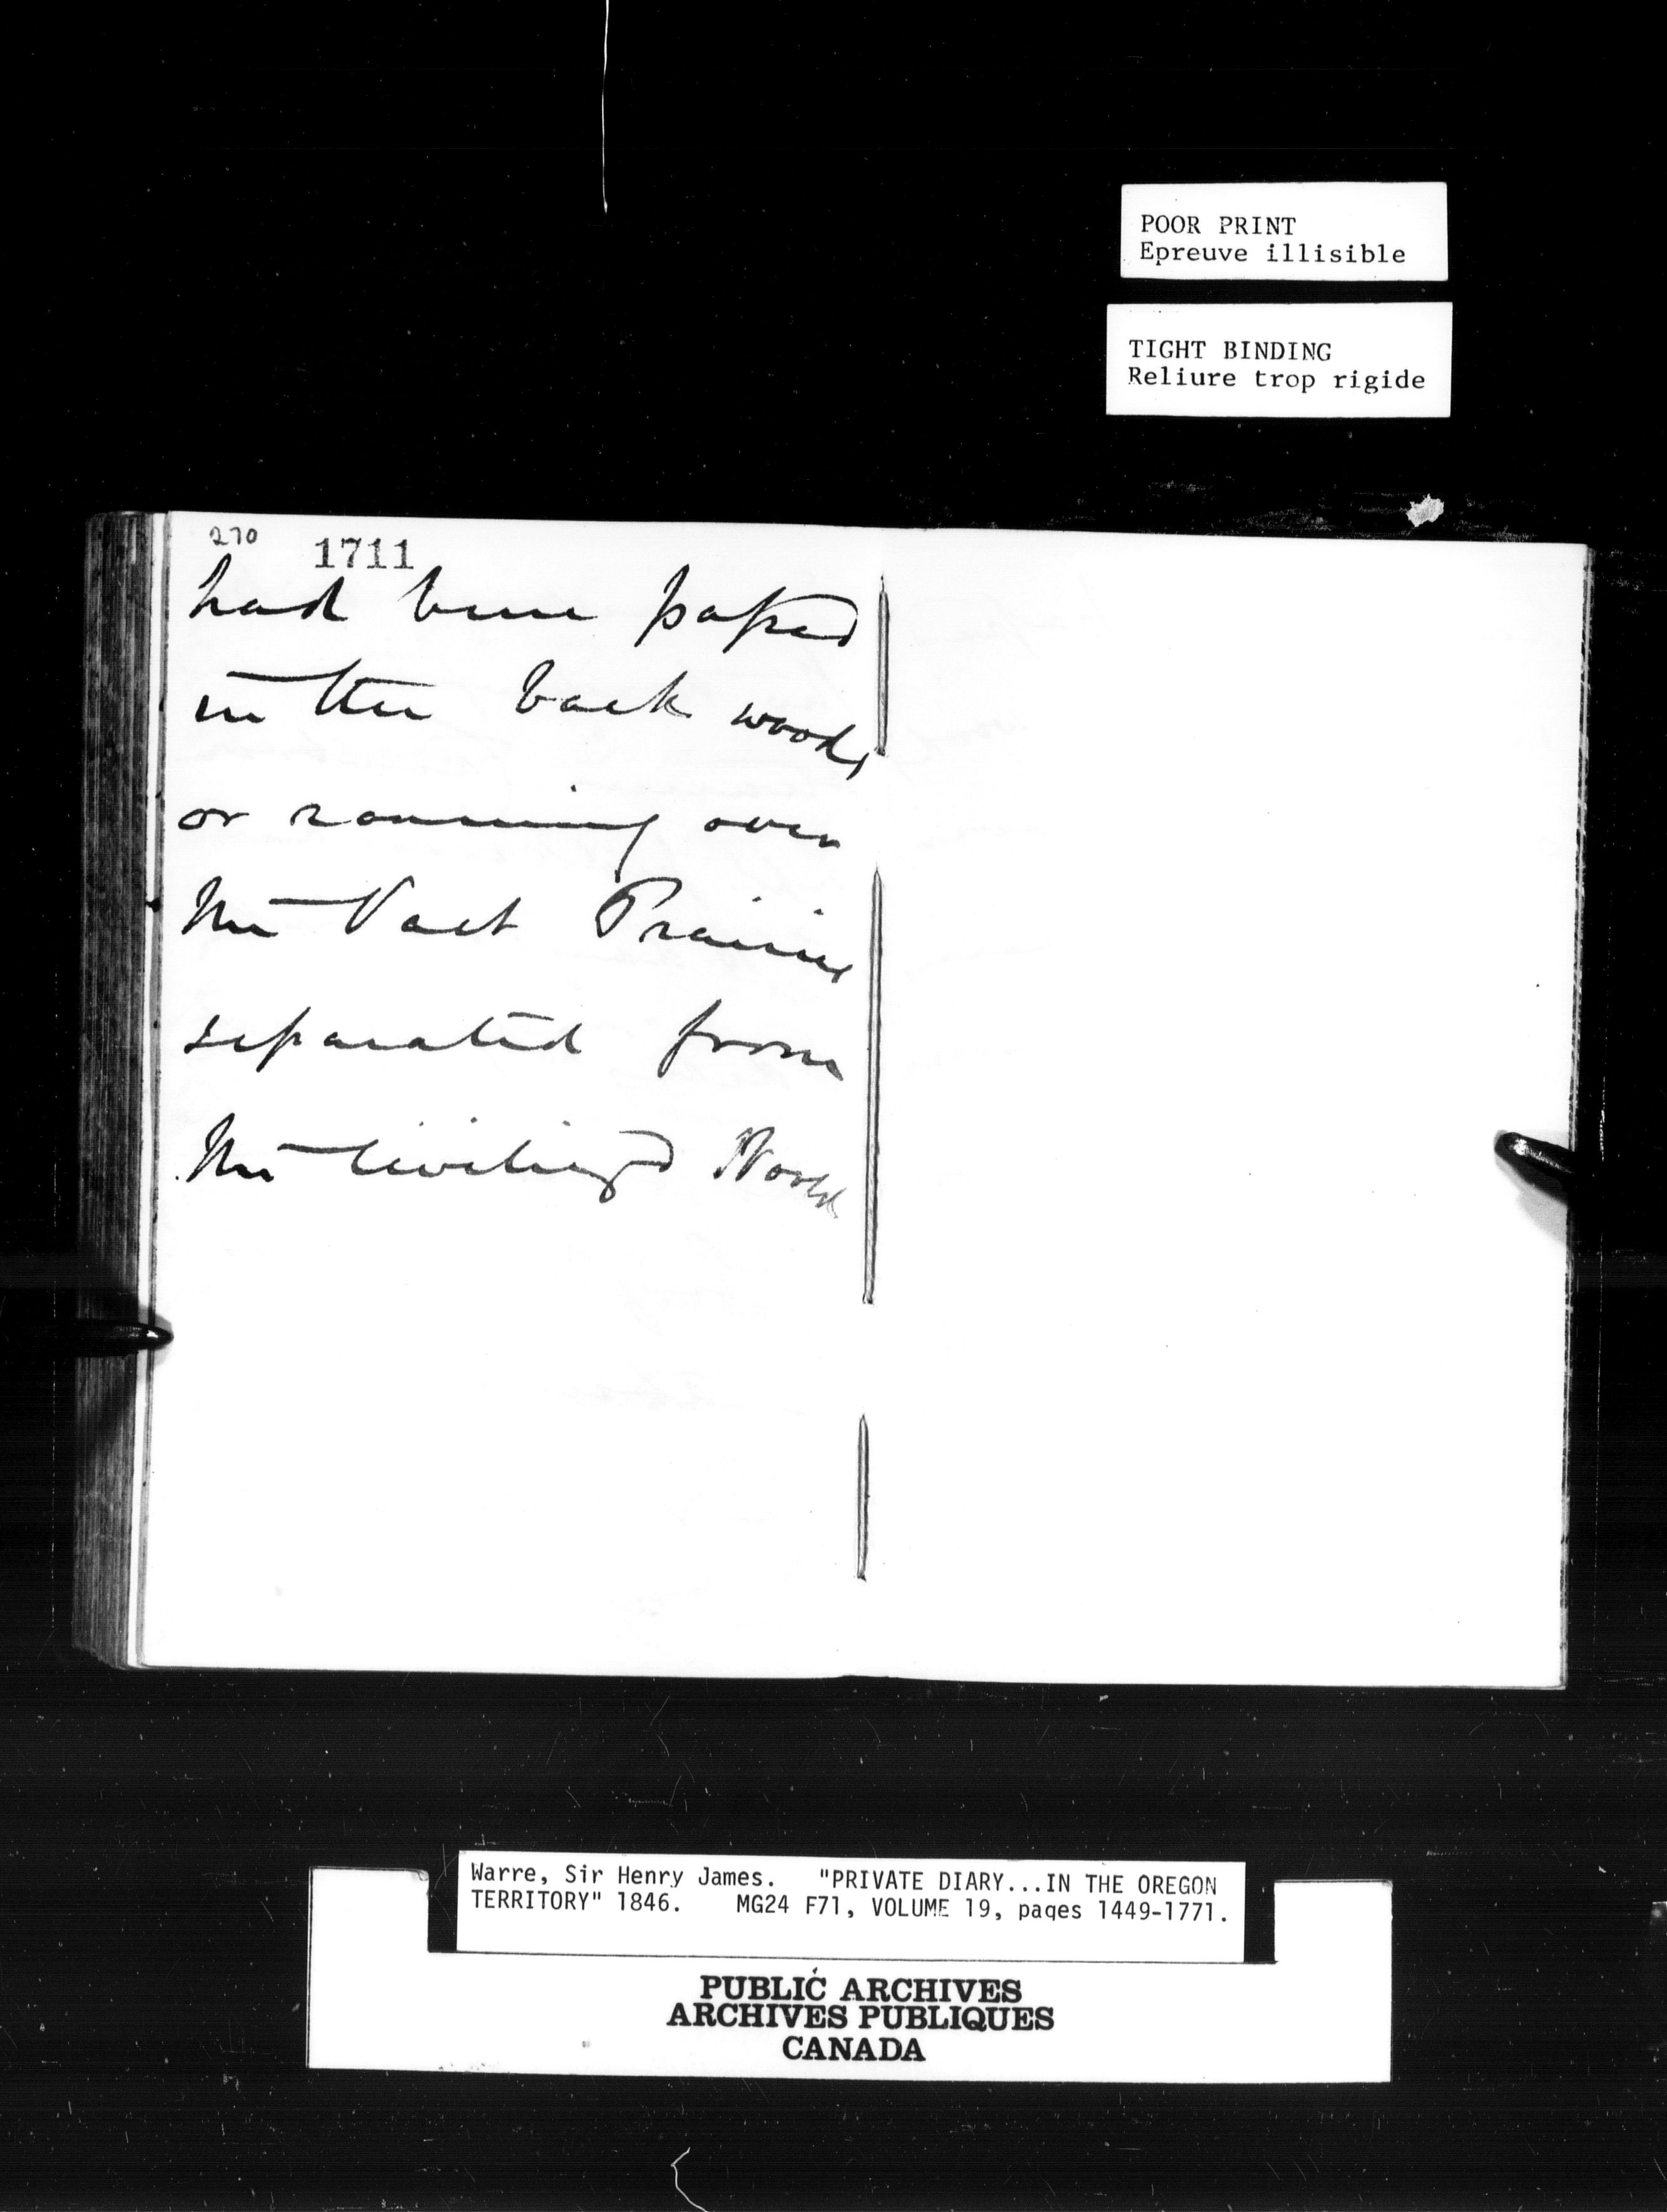 POOR PRINT
Epreuve illisible
TIGHT BINDING
Reliure trop rigide
270 1711
had been passed
in the back woods
or roaming over
the Vast Prairies
separated from
the civilized World
Warre, Sir Henry James. "PRIVATE DIARY...IN THE OREGON
TERRITORY" 1846. MG24 F71, VOLUME 19, pages 1449-1771.
PUBLIC ARCHIVES
ARCHIVES PUBLIQUES
CANADA